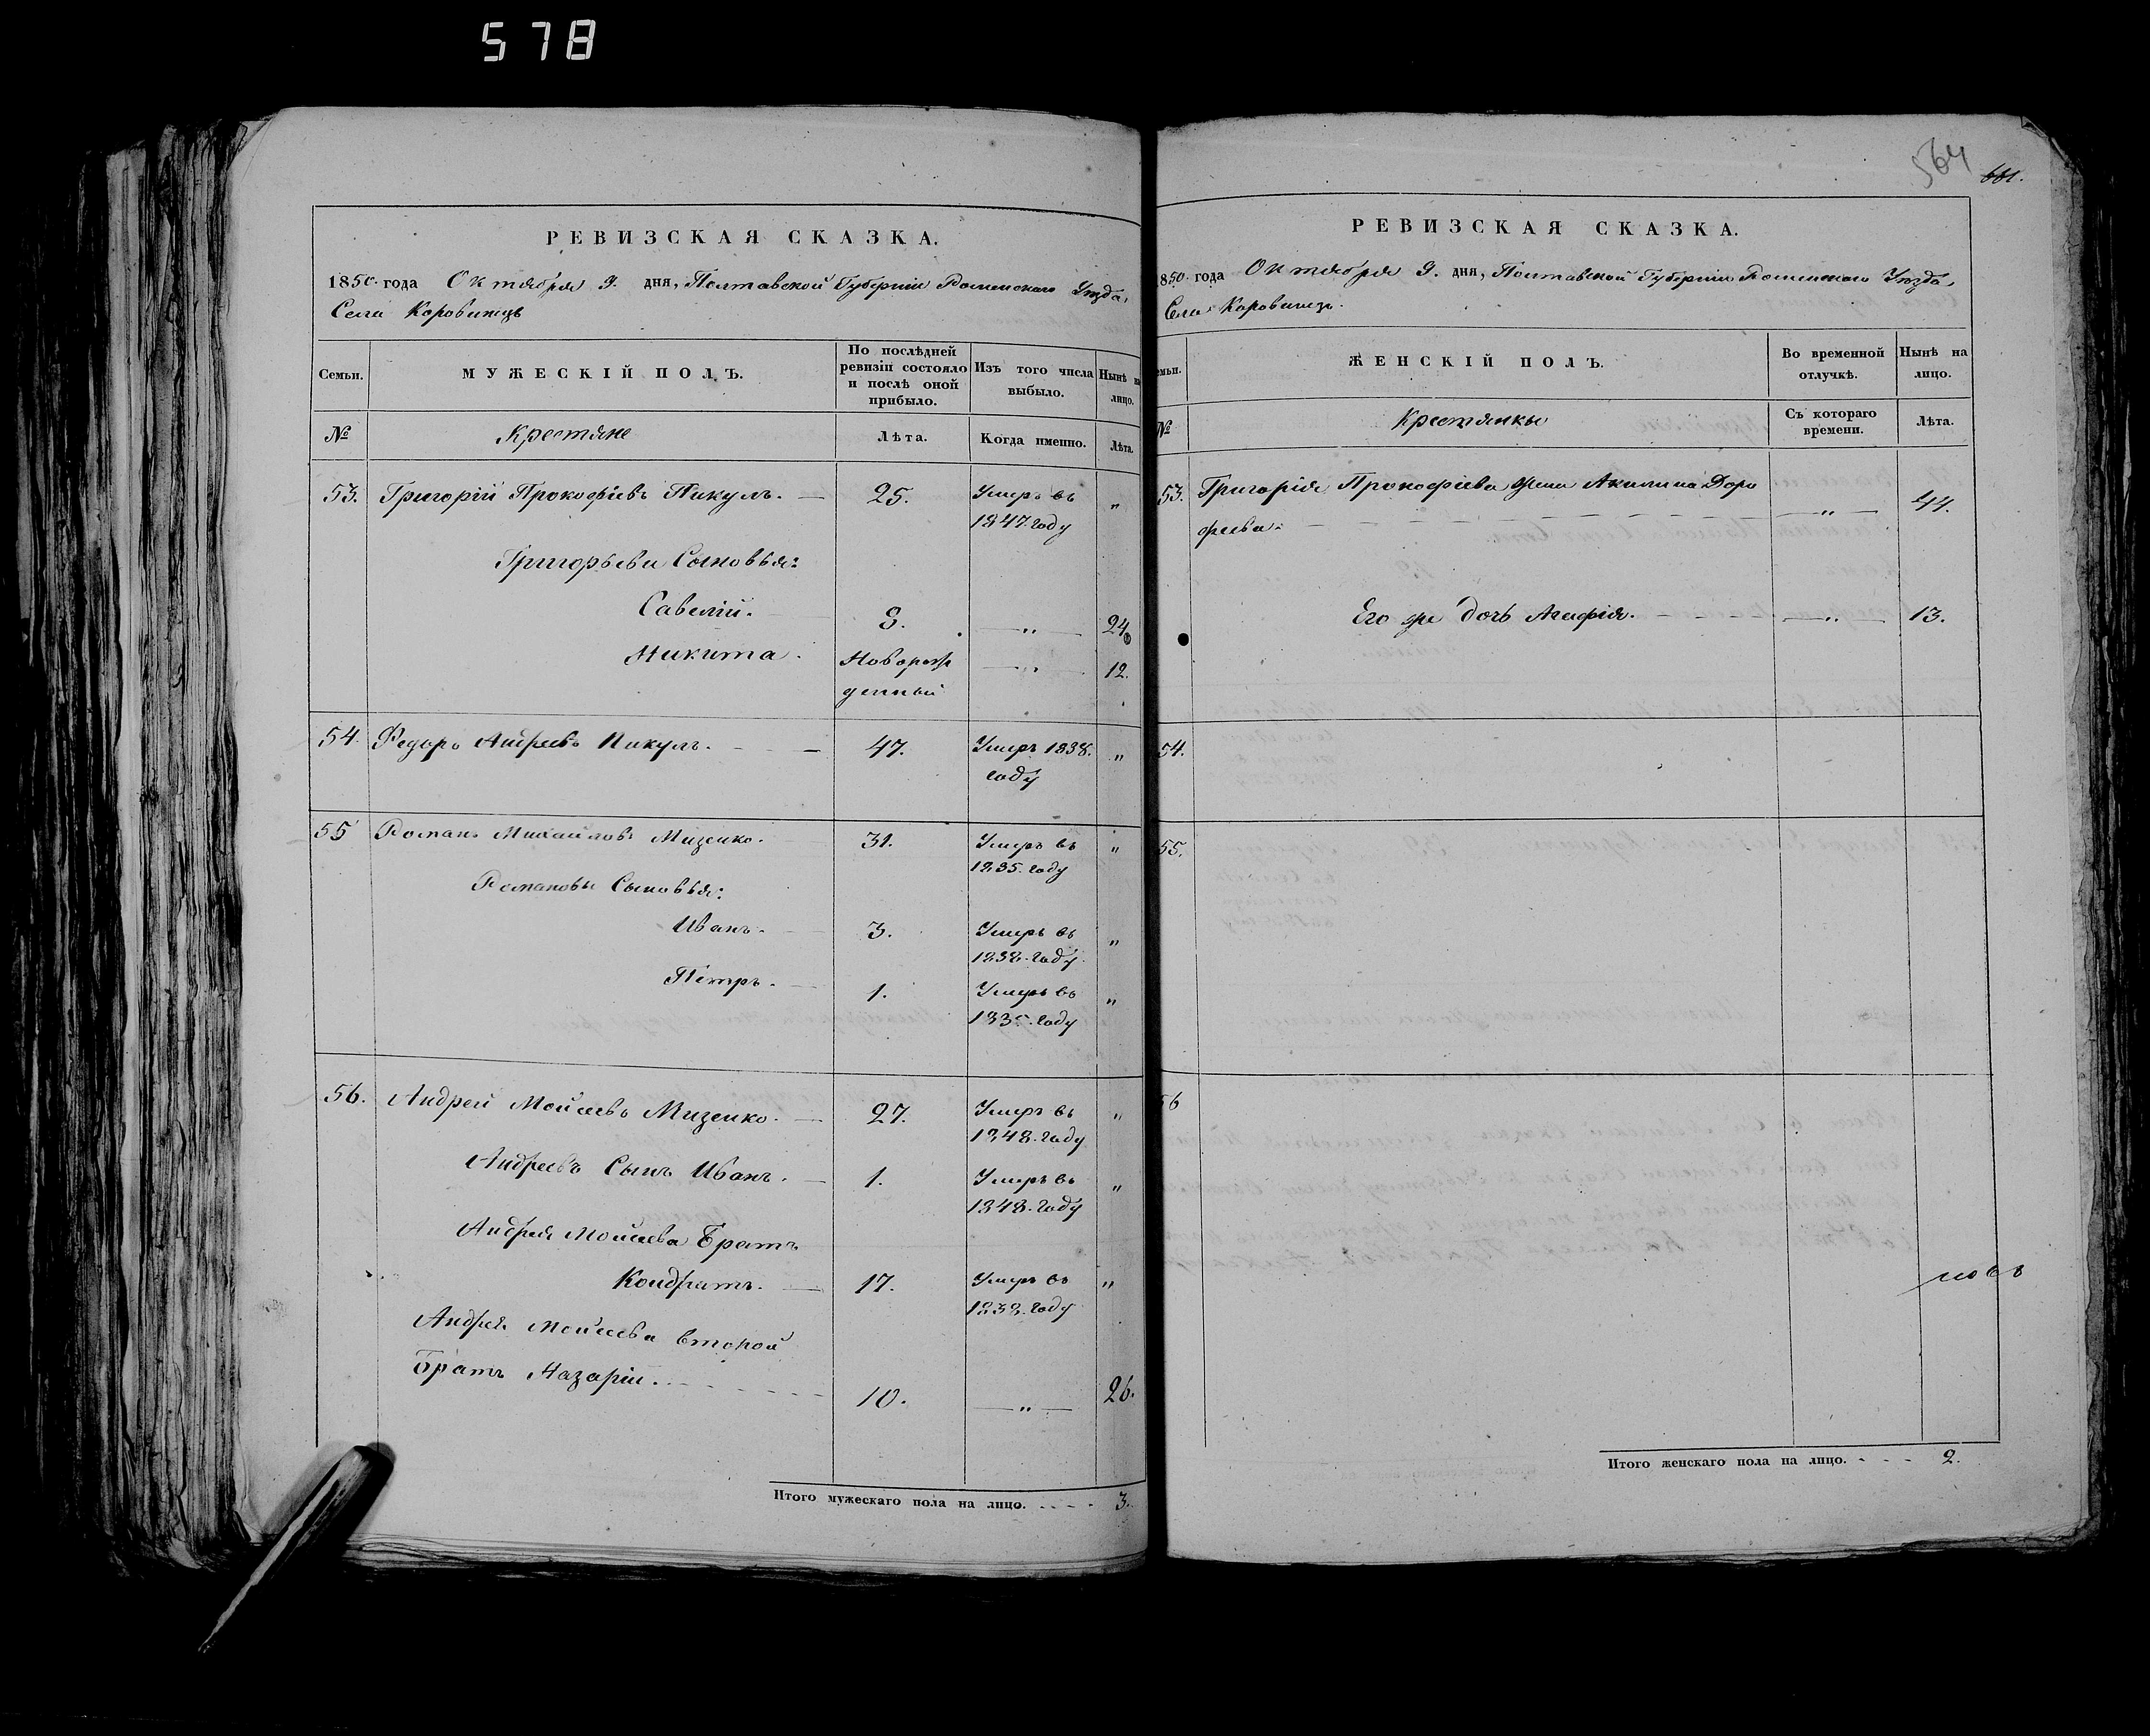 578
РЕВИЗСКАЯ СКАЗКА.
1850. года Октября 9. дня, Полтавской Губерніи Роменскаго Уѣзда,
Села Коровинецъ
Семьи.
МУЖЕСКІЙ ПОЛЪ.
По послѣдней ревизіи состояло и послѣ оной прибыло.
Изъ того числа выбыло.
Нынѣ на лицо.
№
Крестяне
Лѣта.
Когда именно.
Лѣта.
53. Григорій Прокофіевъ Пикулъ. — 25. Умеръ въ "
1847. году
Григорьева Сыновья:
Савелій. 8. — " — 24
Никита.Новорож — " — 12.
денный
54. Федоръ Андреевъ Пикулъ. — 47. Умеръ 1838. "
году
55 Романъ Михайловъ Мизенко. 31. Умеръ въ "
1835. году
Романовы Сыновья:
Иванъ. — 3. Умеръ въ "
1838. году
Петръ. — 1. Умеръ въ "
1835. году
56. Андрей Мойсеевъ Мизенко. — 27. Умеръ въ "
1848. году
Андреевъ Сынъ Иванъ. — 1. Умеръ въ "
1848. году
Андрея Мойсеева Братъ
Кондратъ. — 17. Умеръ въ "
1838. году
Андрея Мойсеева второй
Братъ Назарій. 10. — " — 26.
Итого мужескаго пола на лицо. - - - - 3.
564
661.
РЕВИЗСКАЯ СКАЗКА.
850. года Октября 9. дня, Полтавской Губерніи Роменскаго Уѣзда,
Села Коровинецъ.
емьи.
ЖЕНСКІЙ ПОЛЪ.
Во временной отлучкѣ.
Нынѣ на лицо.
№
Крестянки
Съ котораго времени.
Лѣта.
53. Григорія Прокофіева жена Акилина Доро — " — 44.
феева.
Его же дочь Агафія. — " — 13.
54.
55.
56
новъ
Итого женскаго пола на лицо. - - - 2.